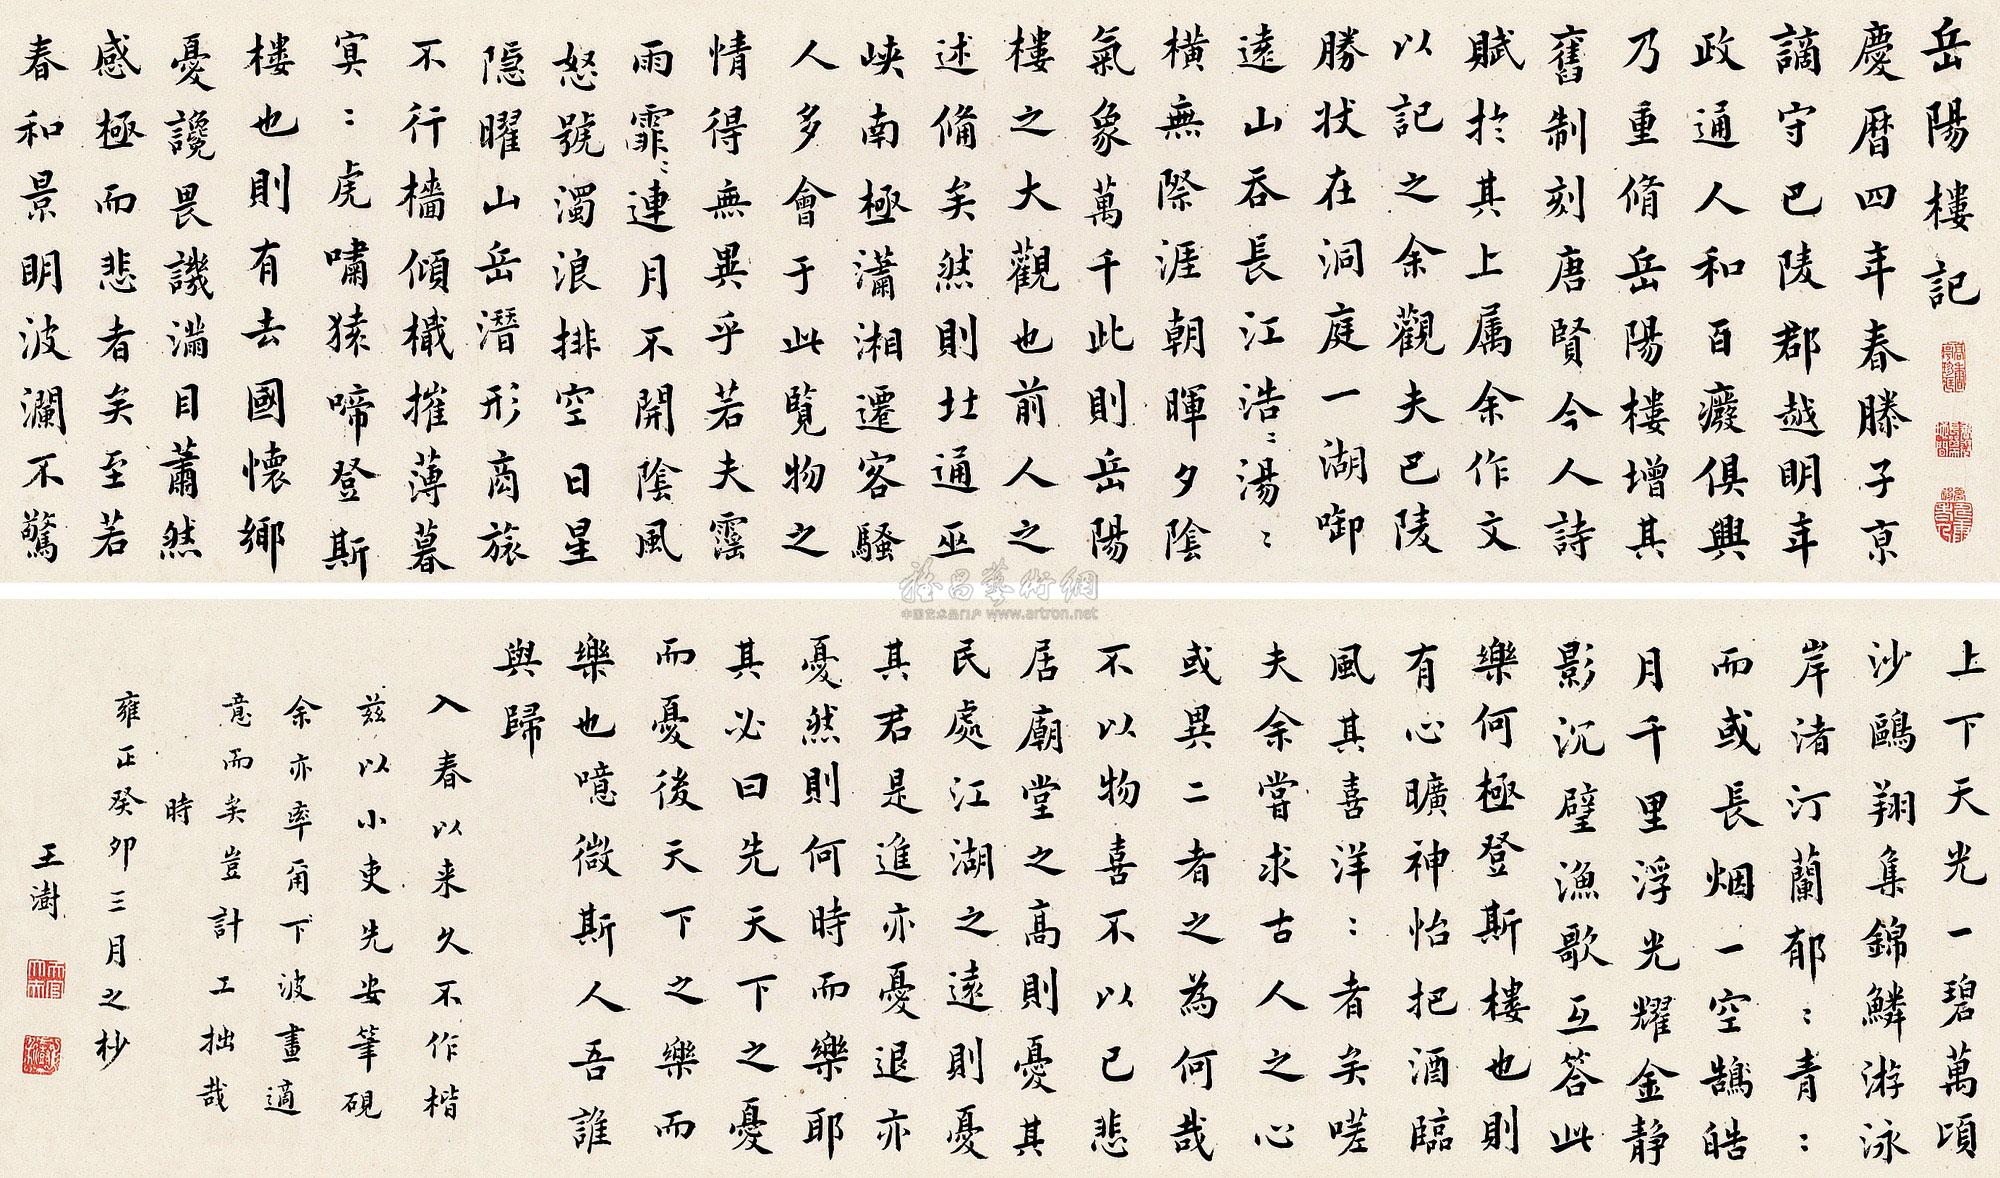 岳陽樓記
慶曆四年春滕子京
謫守巴陵郡越明年
政通人和百癈俱興
乃重脩岳陽樓增其
舊制刻唐賢今人詩
賦於其上属余作文
以記之余觀夫巴陵
勝状在洞庭一湖啣
遠山吞長江浩〻湯〻
橫無際涯朝暉夕陰
氣象萬千此則岳陽
樓之大觀也前人之
述備矣然則北通巫
峽南極瀟湘遷客騷
人多會于此覧物之
情得無異乎若夫霪
雨霏〻連月不開陰風
怒號濁浪排空日星
隠曜山岳潛形商旅
不行檣傾檝摧薄暮
冥〻虎嘯猿啼登斯
樓也則有去國懷鄉
憂讒畏譏滿目蕭然
感極而悲者矣至若
春和景明波瀾不驚
上下天光一碧萬頃
沙鷗翔集錦鱗游泳
岸渚汀蘭郁〻青〻
而或長烟一空鵠皓
月千里浮光耀金静
影沉璧漁歌互答此
樂何極登斯樓也則
有心曠神怡把酒臨
風其喜洋〻者矣嗟
夫余嘗求古人之心
或異二者之為何哉
不以物喜不以已悲
居廟堂之高則憂其
民處江湖之遠則憂
其君是進亦憂退亦
憂然則何時而樂耶
其必曰先天下之憂
而憂後天下之樂而
樂也噫微斯人吾誰
與歸
入春以来久不作楷
兹以小吏先安筆硯
余亦率爾下波畫適
意而矣豈計工拙哉
時
雍正癸卯三月之杪
王澍
www.artron.net